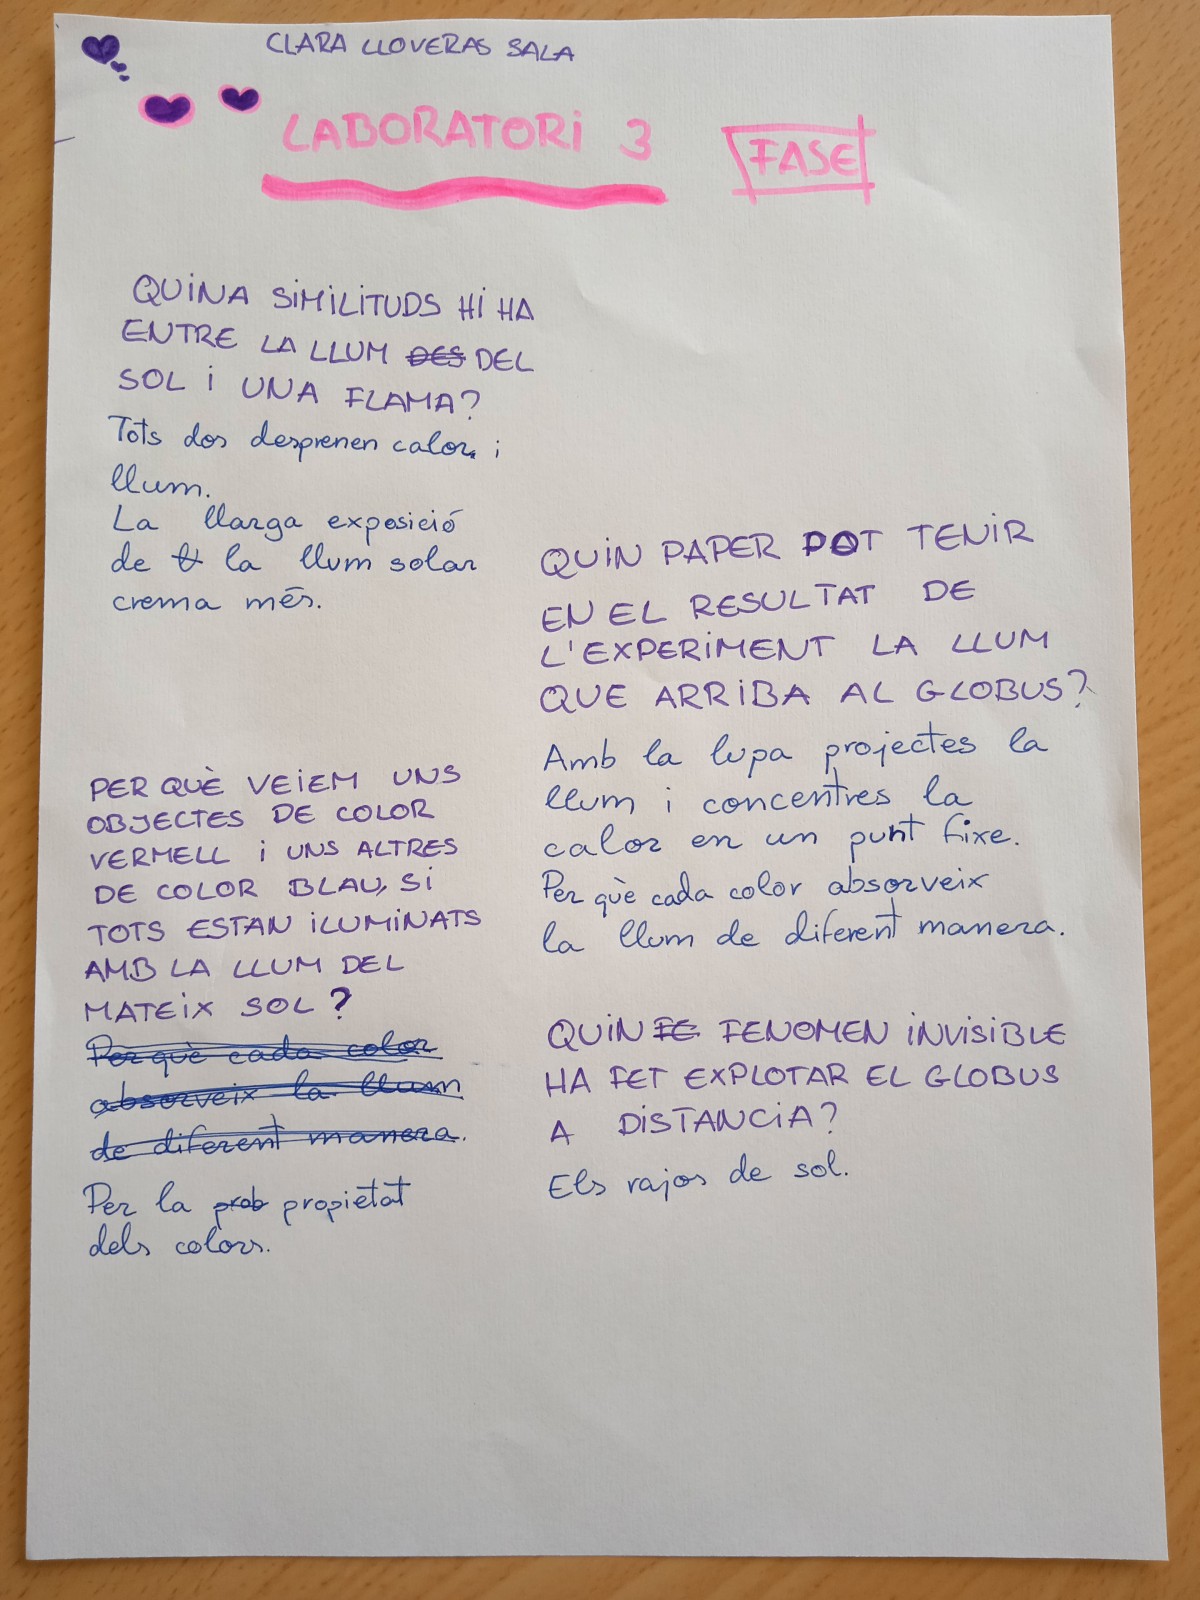 CLARA LLOVERAS SALA
LABORATORI 3
FASE
QUINA SIMILITUDS HI HA
ENTRE LA LLUM DES DEL
SOL I UNA FLAMA?
Tots dos desprenen calor i
llum.
La llarga exposició
de la llum solar
crema més.
PER QUÈ VEIEM UNS
OBJECTES DE COLOR
VERMELL I UNS ALTRES
DE COLOR BLAU, SI
TOTS ESTAN ILUMINATS
AMB LA LLUM DEL
MATEIX SOL?
Per què cada color
absorveix la llum
de diferent manera.
Per la prob propietat
dels colors.
QUIN PAPER POT TENIR
EN EL RESULTAT DE
L'EXPERIMENT LA LLUM
QUE ARRIBA AL GLOBUS?
Amb la lupa projectes la
llum i concentres la
calor en un punt fixe.
Per què cada color absorveix
la llum de diferent manera.
QUIN FE FENOMEN INVISIBLE
HA FET EXPLOTAR EL GLOBUS
A DISTANCIA?
Els rajos de sol.